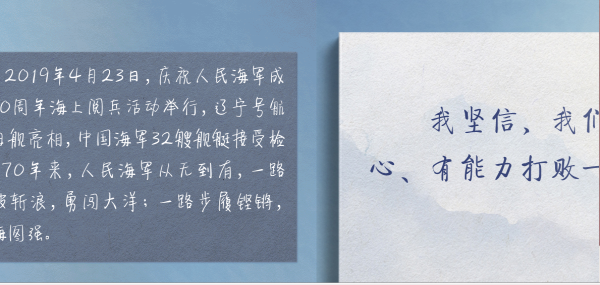 2019年4月23日,庆祝人民海军成
0周年海上阅兵活动举行,辽宁号航
舰亮相,中国海军32艘舰艇接受检
70年来,人民海军从无到有,一路
斩浪,勇闯大洋;一路步履铿锵,
图强。
我坚信、我们
心、有能力打败一